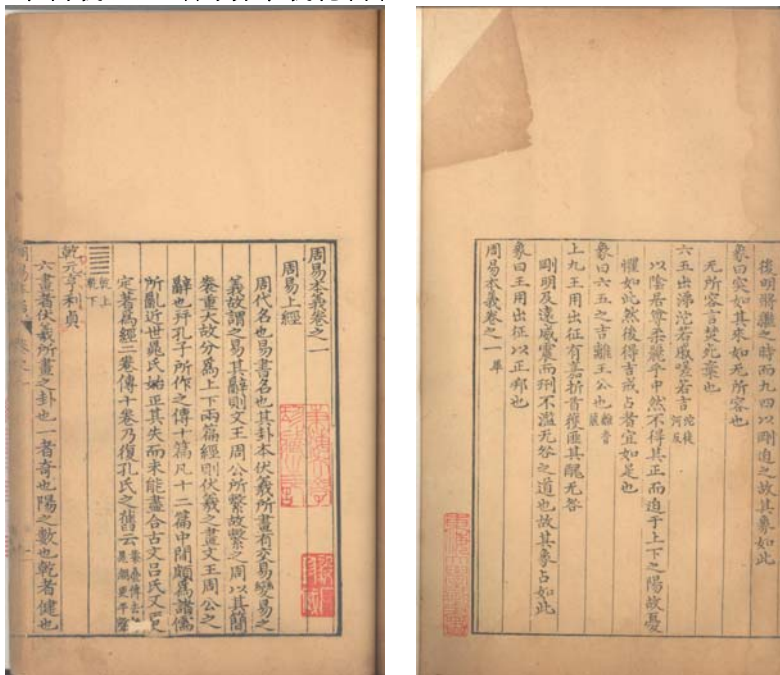 周易本義卷之一
周易上經
周代名也易書名也其卦本伏羲所畫有交易變易之
義故謂之易其辭則文王周公所繫故繫之周以其簡
袠重大故分爲上下兩篇經則伏羲之畫文王周公之
辭也并孔子所作之傳十篇凡十二篇中間頗爲諸儒
所亂近世晁氏始正其失而未能盡合古文吕氏又更
定著爲經二卷傳十卷乃復孔氏之舊云
乾上
乾下
乾元亨利貞
六畫者伏羲所畫之卦也一者奇也陽之數也乾者健也
後明將繼之時而九四以剛迫之故其象如此
象曰突如其來如无所容也
无所容言焚死棄也
六五出涕沱若戚嗟若吉
沱徒
河反
以陰居尊柔麗乎中然不得其正而迫于上下之陽故憂
懼如此然後得吉戒占者宜如是也
象曰六五之吉離王公也
離音
麗
上九王用出征有嘉折首獲匪其醜无咎
剛明及遠威震而刑不濫无咎之道也故其象占如此
象曰王用出征以正邦也
周易本義卷之一
畢